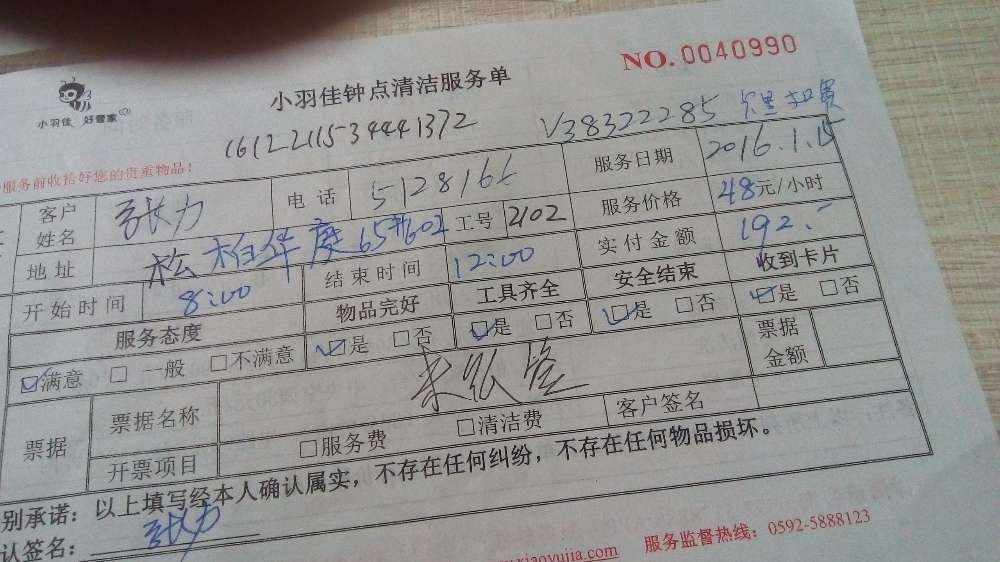 NO.0040990
小羽佳 好管家
小羽佳钟点清洁服务单
16122115344441372 V38322285
服务前收拾好您的贵重物品！
客户姓名 张力 电话 5128166 服务日期 2016.1.15
地址 松柏华庭65#602 工号 2102 服务价格 48元/小时
开始时间 8:00 结束时间 12:00 实付金额 192.-
服务态度 物品完好 工具齐全 安全结束 收到卡片
☑满意 □一般 □不满意 ☑是 □否 ☑是 □否 ☑是 □否 ☑是 □否
票据 票据名称 票据金额
开票项目 □服务费 □清洁费 客户签名
别承诺：以上填写经本人确认属实，不存在任何纠纷，不存在任何物品损坏。
认签名： 张力
xiaoyujia.com 服务监督热线：0592-5888123